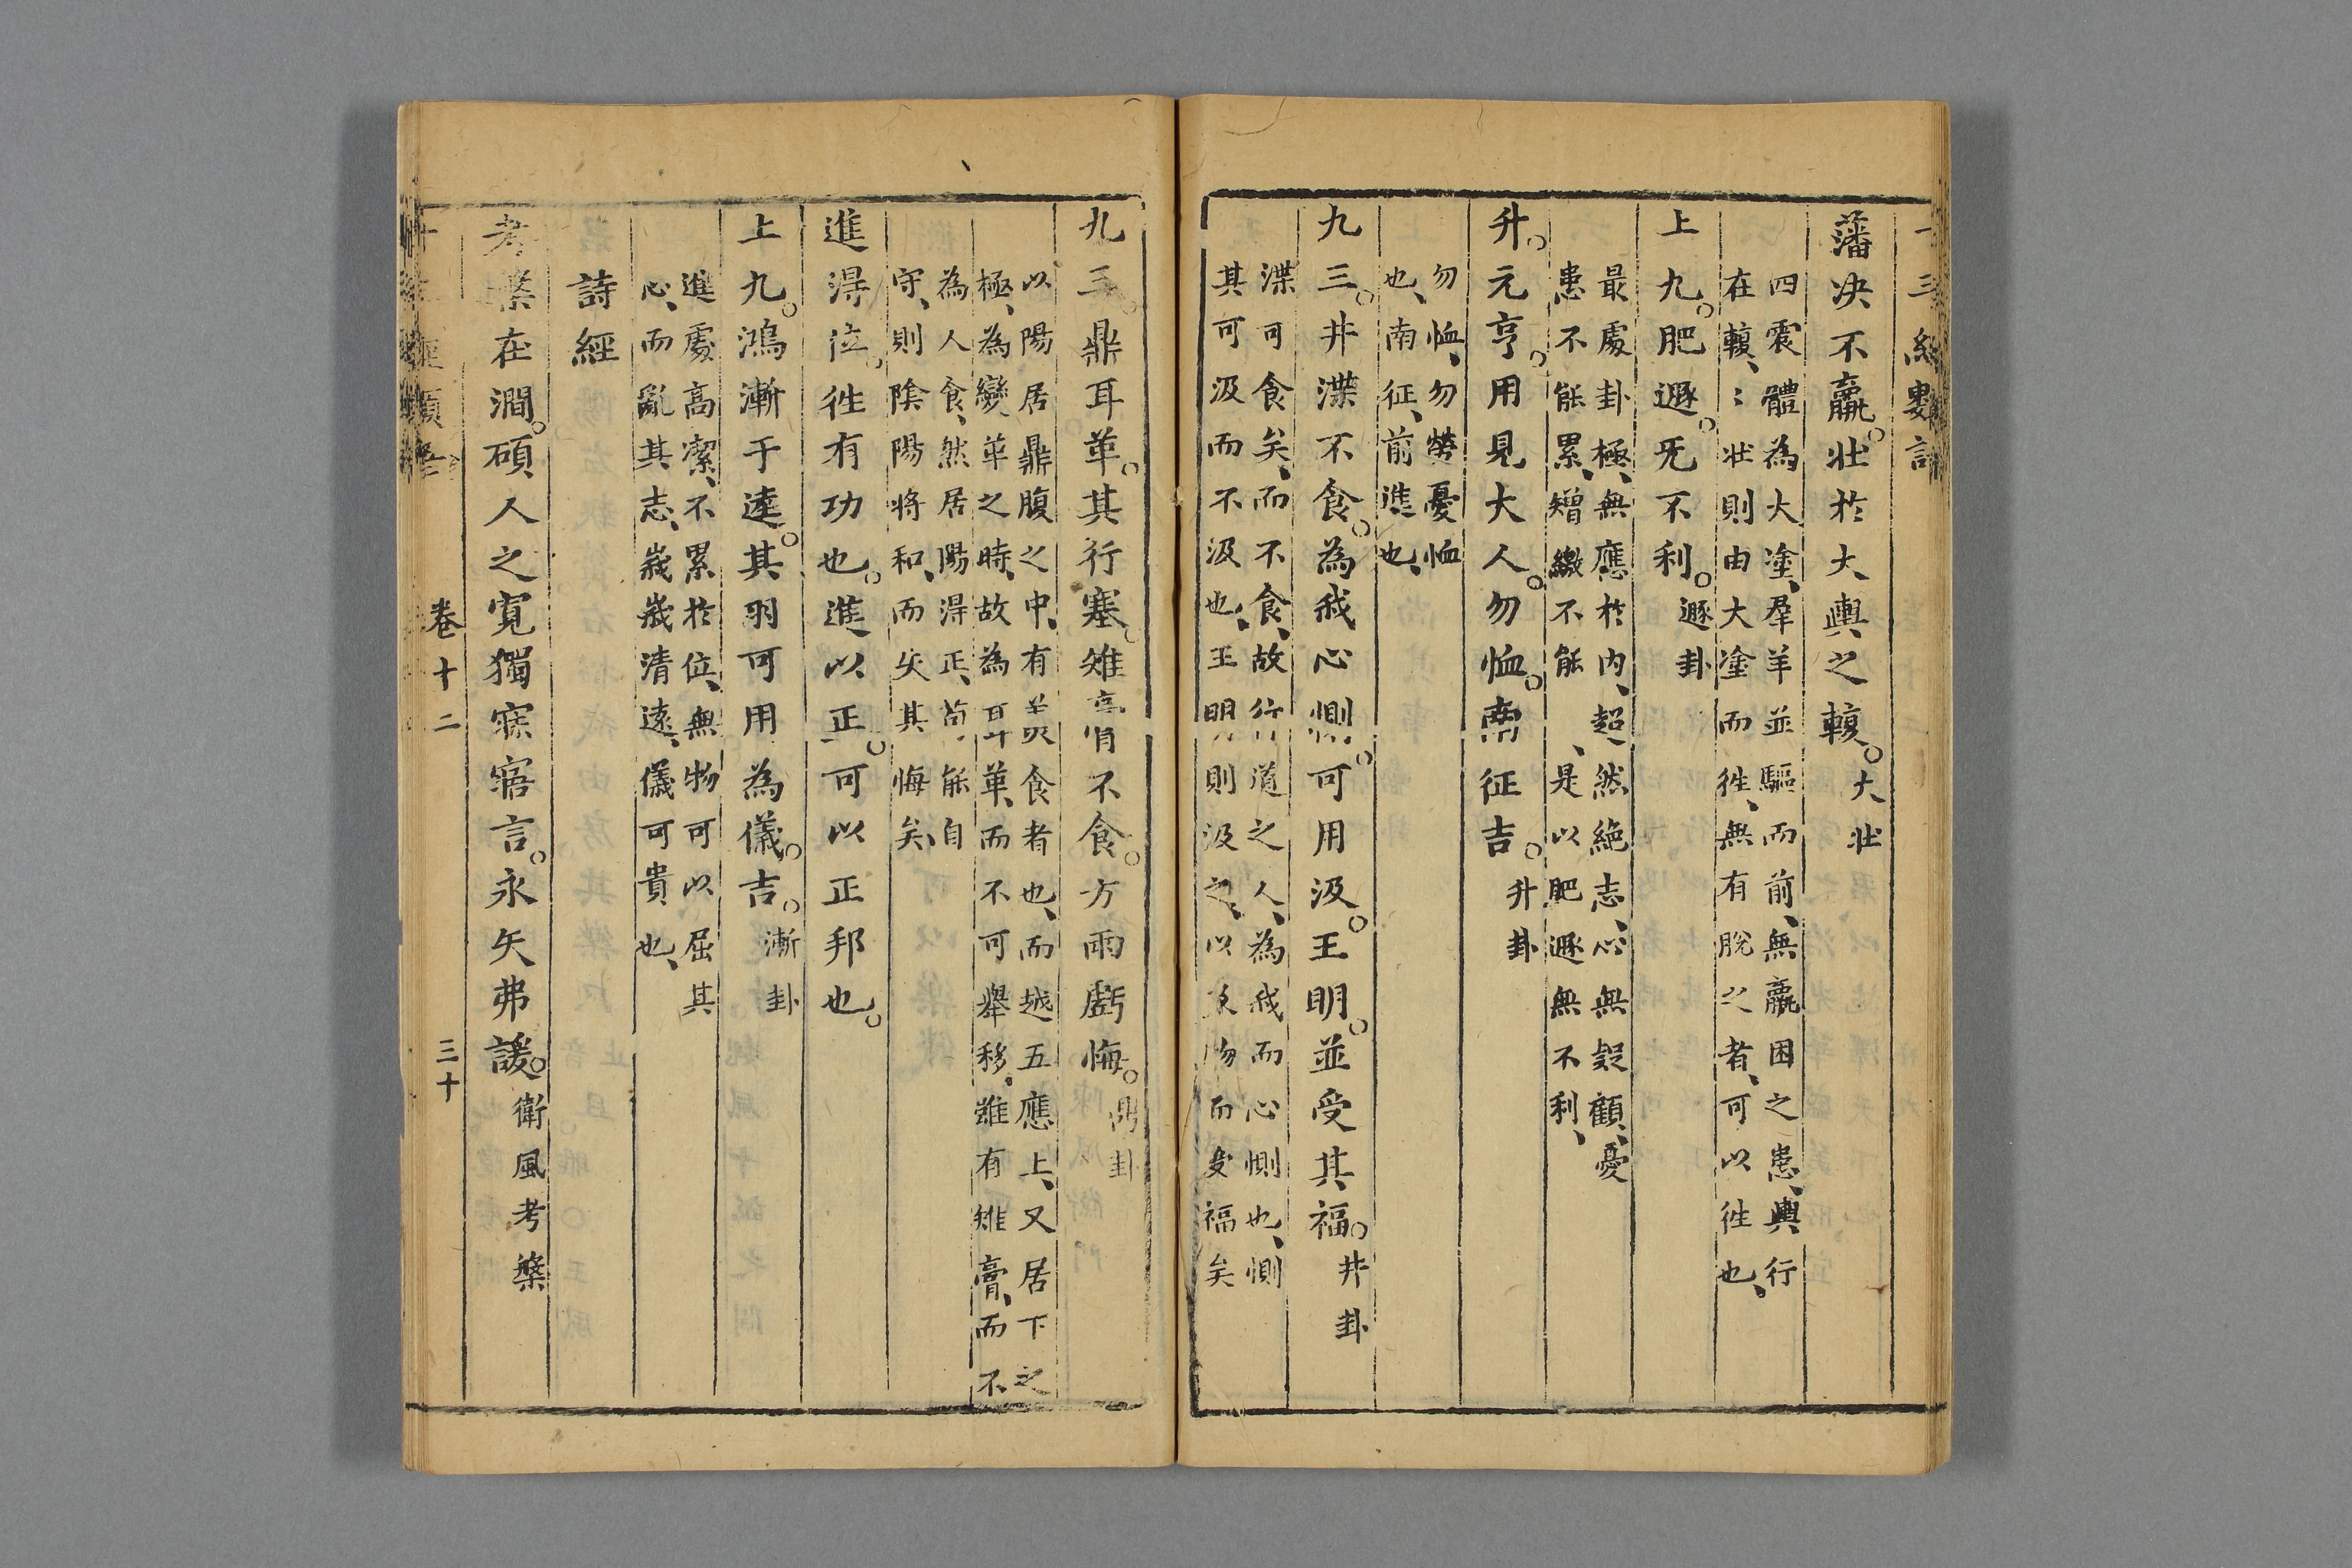 藩决不羸壯於大輿之輹大壯
四震體為大塗羣羊並驅而前無羸困之患輿行
在輹〻壯則由大塗而徃無有脫之者可以徃也
上九肥遯旡不利遯卦
最處卦極無應於內超然絶志心無疑顧憂
患不能累矰繳不能是以肥遯無不利
升元亨用見大人勿恤南征吉升卦
勿恤勿勞憂恤
也南征前進也
九三井渫不食為我心惻可用汲王明並受其福井卦
渫可食矣而不食故行道之人為我而心惻也惻
其可汲而不汲也王明則汲之以及物而受福矣
九三鼎耳革其行塞雉膏不食方雨虧悔鼎卦
以陽居鼎腹之中有美食者也而越五應上又居下之
極為變革之時故為耳革而不可舉移雖有雉膏而不
為人食然居陽得正苟能自
守則陰陽將和而失其悔矣
進得位徃有功也進以正可以正邦也
上九鴻漸于逵其羽可用為儀吉漸卦
進處高潔不累於位無物可以屈其
心而亂其志峩峩清遠儀可貴也
詩經
考槃在澗碩人之寛獨寐寤言永矢弗諼衛風考槃
卷十二 三十